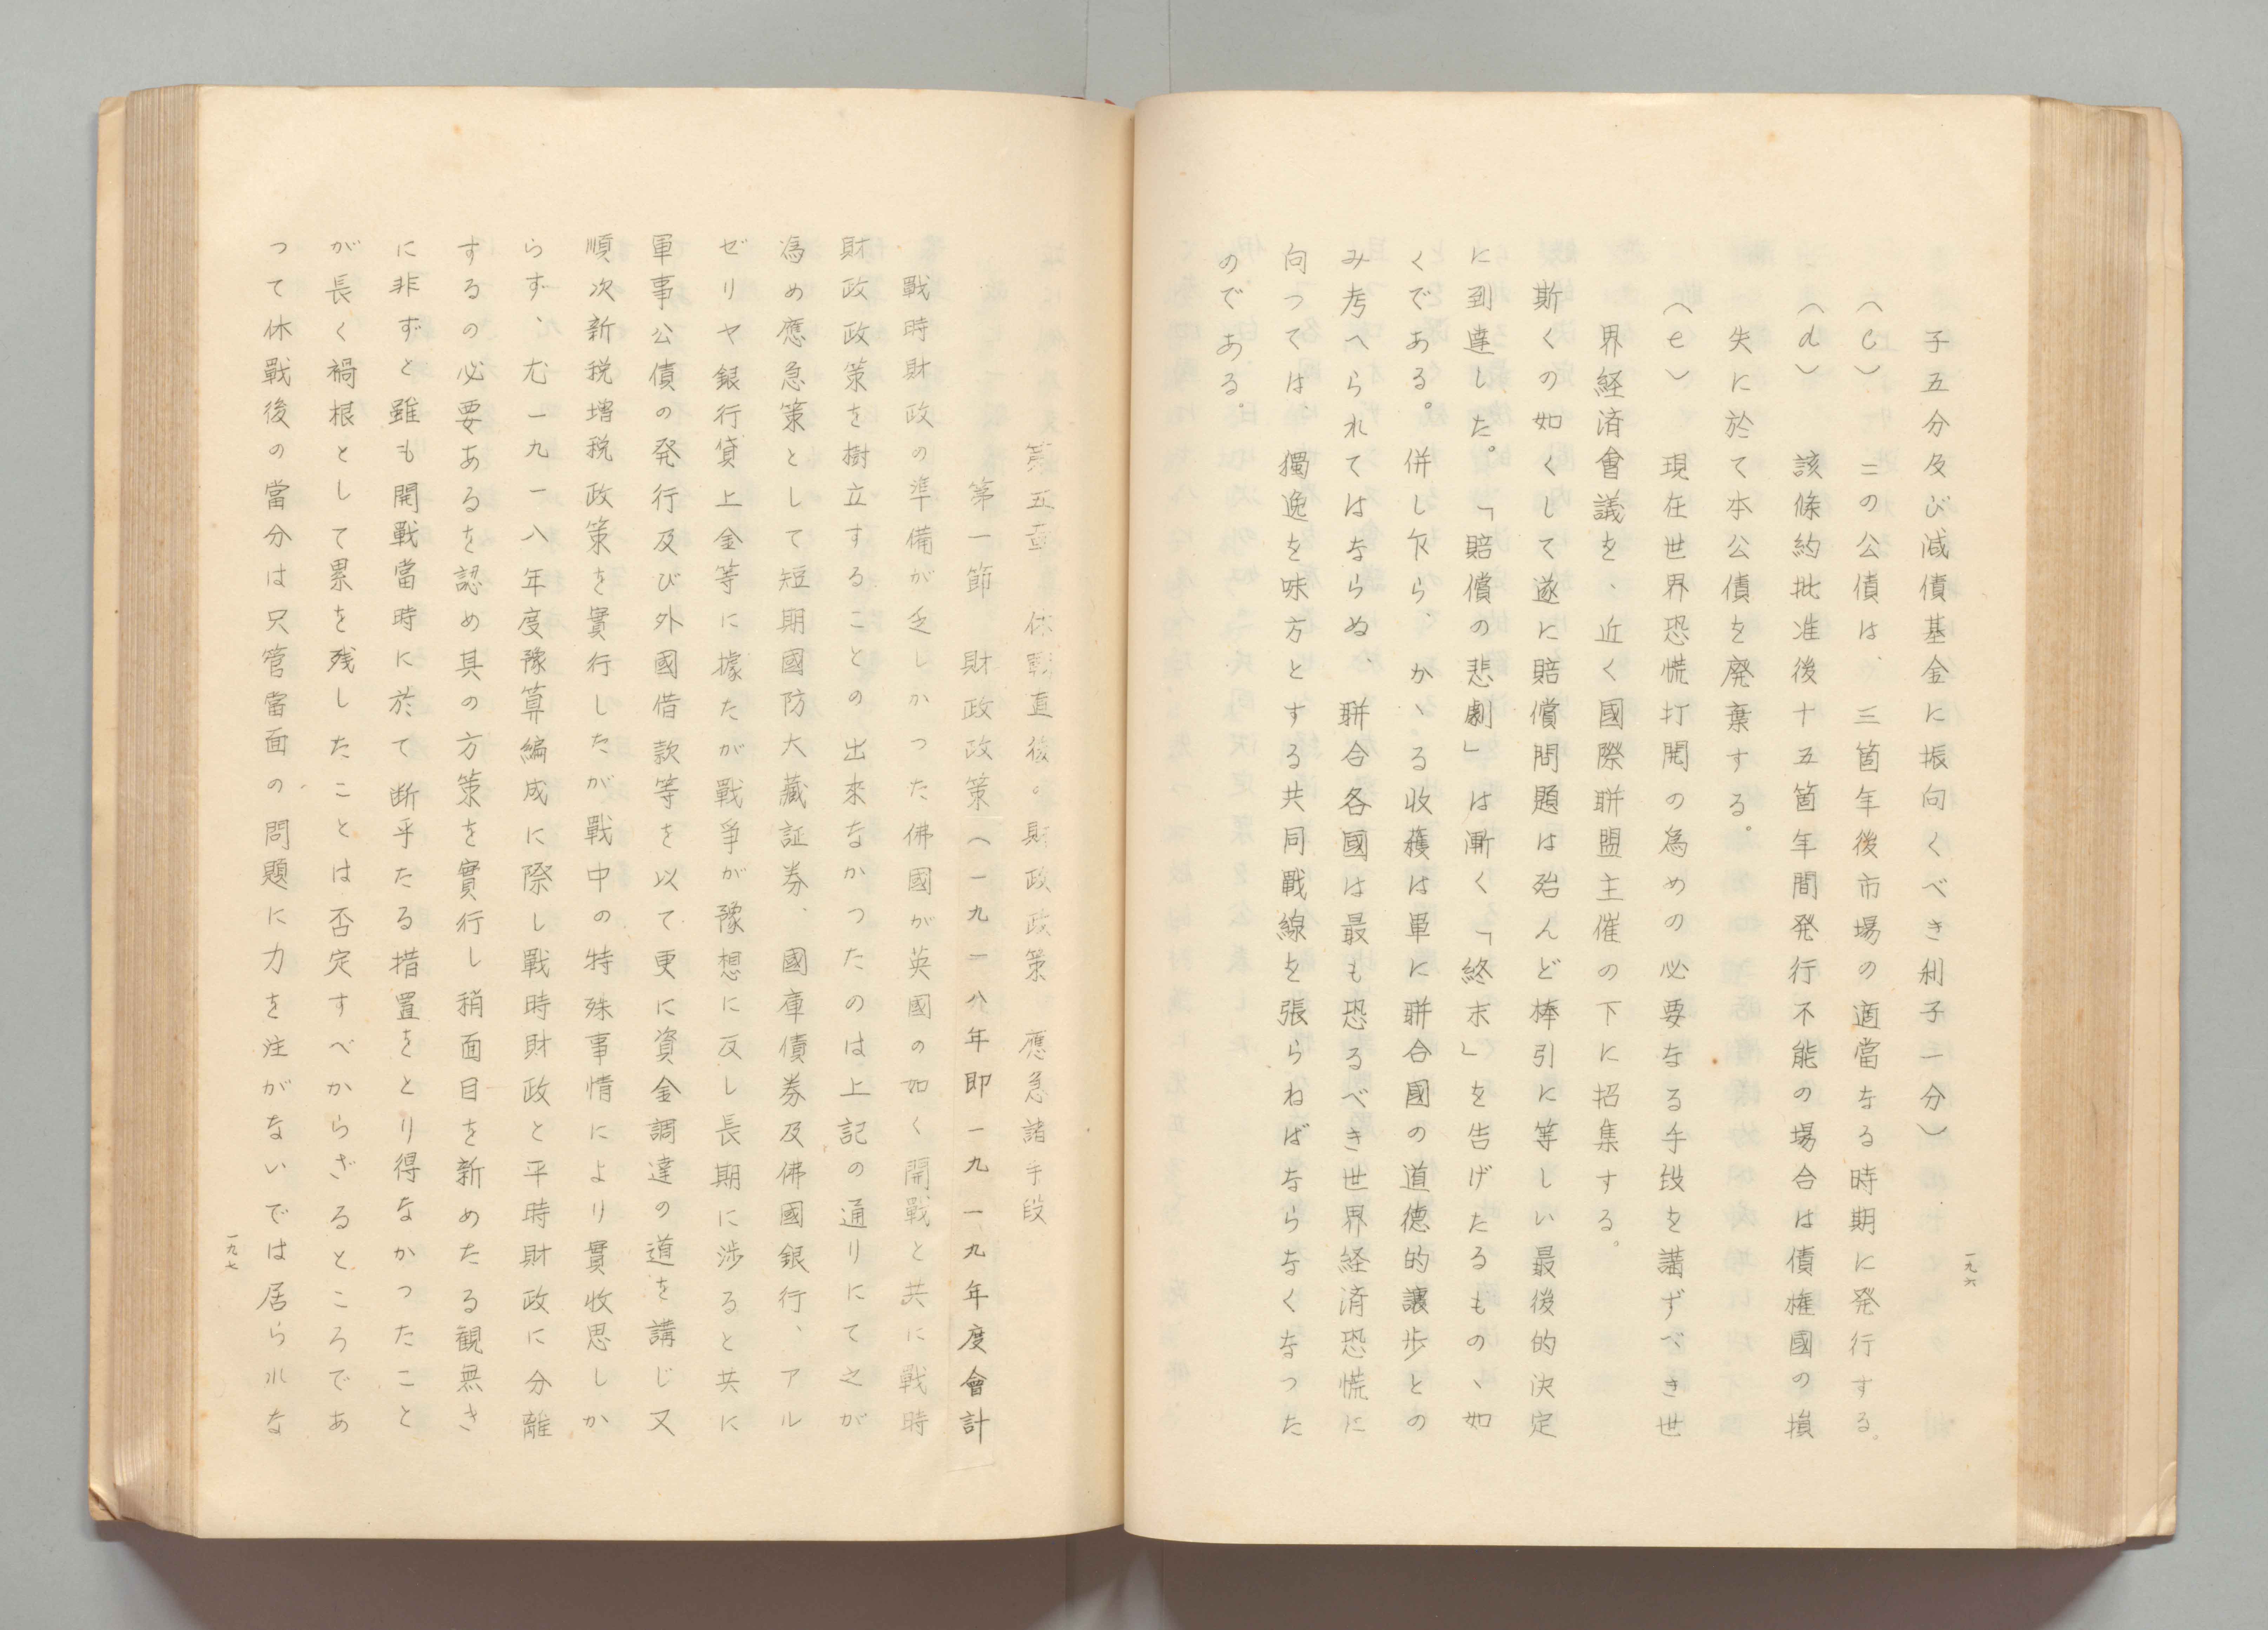 一九六
子五分及び減債基金に振向くべき利子一分)
(c) この公債は、三箇年後市場の適當なる時期に発行する。
(d) 該條約批准後十五箇年間発行不能の場合は債権國の損
失に於て本公債を廃棄する。
(e) 現在世界恐慌打開の為めの必要なる手段を講ずべき世
界経済會議を、近く國際聯盟主催の下に招集する。
斯くの如くして遂に賠償問題は殆んど棒引に等しい最後的決定
に到達した。「賠償の悲劇」は漸く「終末」を告げたるもの、如
くである。併し乍ら、かゝる收穫は単に聯合國の道德的讓歩との
み考へられてはならぬ、聯合各國は最も恐るべき世界経済恐慌に
向つては、獨逸を味方とする共同戰線を張らねばならなくなつた
のである。
第五章 休戰直後。財政政策 應急諸手段
第一節 財政政策(一九一八年即一九一九年度會計)
戰時財政の準備が乏しかつた佛國が英國の如く開戰と共に戰時
財政政策を樹立することの出來なかつたのは上記の通りにて之が
為め應急策として短期國防大藏証券、國庫債券及佛國銀行、アル
ゼリヤ銀行貸上金等に據たが戰爭が豫想に反し長期に涉ると共に
軍事公債の発行及び外國借款等を以て更に資金調達の道を講じ又
順次新税増税政策を實行したが戰中の特殊事情により實收思しか
らず、尤一九一八年度豫算編成に際し戰時財政と平時財政に分離
するの必要あるを認め其の方策を實行し稍面目を新めたる観無き
に非ずと雖も開戰當時に於て断乎たる措置をとり得なかつたこと
が長く禍根として累を残したことは否定すべからざるところであ
つて休戰後の當分は只管當面の問題に力を注がないでは居られな
一九七